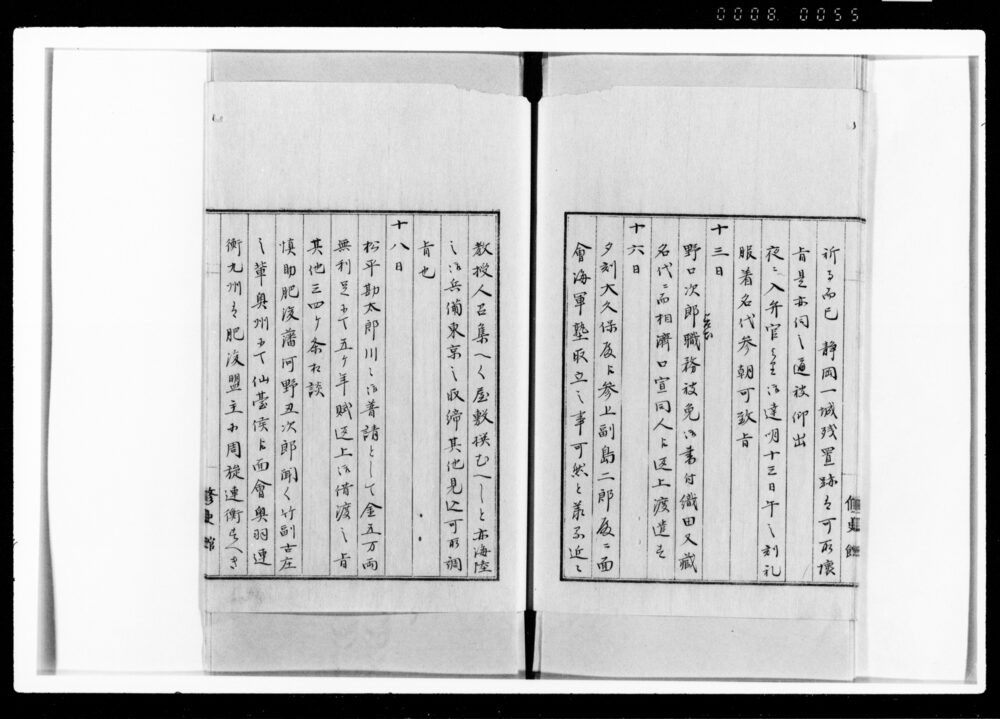 0008 0055
祈る而已 静岡一城残置跡は可取壊
旨是亦伺之通被仰出
夜ニ入弁官より達明十三日午之刻礼
服着名代参朝可致旨
十三日
野口次郎職務被免候書付織田又蔵
名代ニ而相済口宣同人より返上渡遣す
十六日
夕刻大久保殿より参上副島二郎殿ニ面
會海軍塾取立之事可然と第不近々
修史館
教授人召集へく屋敷撰むへしと亦海陸
之兵備東京之取締其他見込可取調
旨也
十八日
松平勘太郎川々普請として金五万両
無利足ニて五ヶ年賦返上借渡之旨
其他三四ヶ条相談
慎助肥後藩河野丑次郎聞く竹副古庄
之輩奥州ニて仙臺侯より面會奥羽連
衡九州は肥後盟主ニ而周旋連衡すへき
修史館